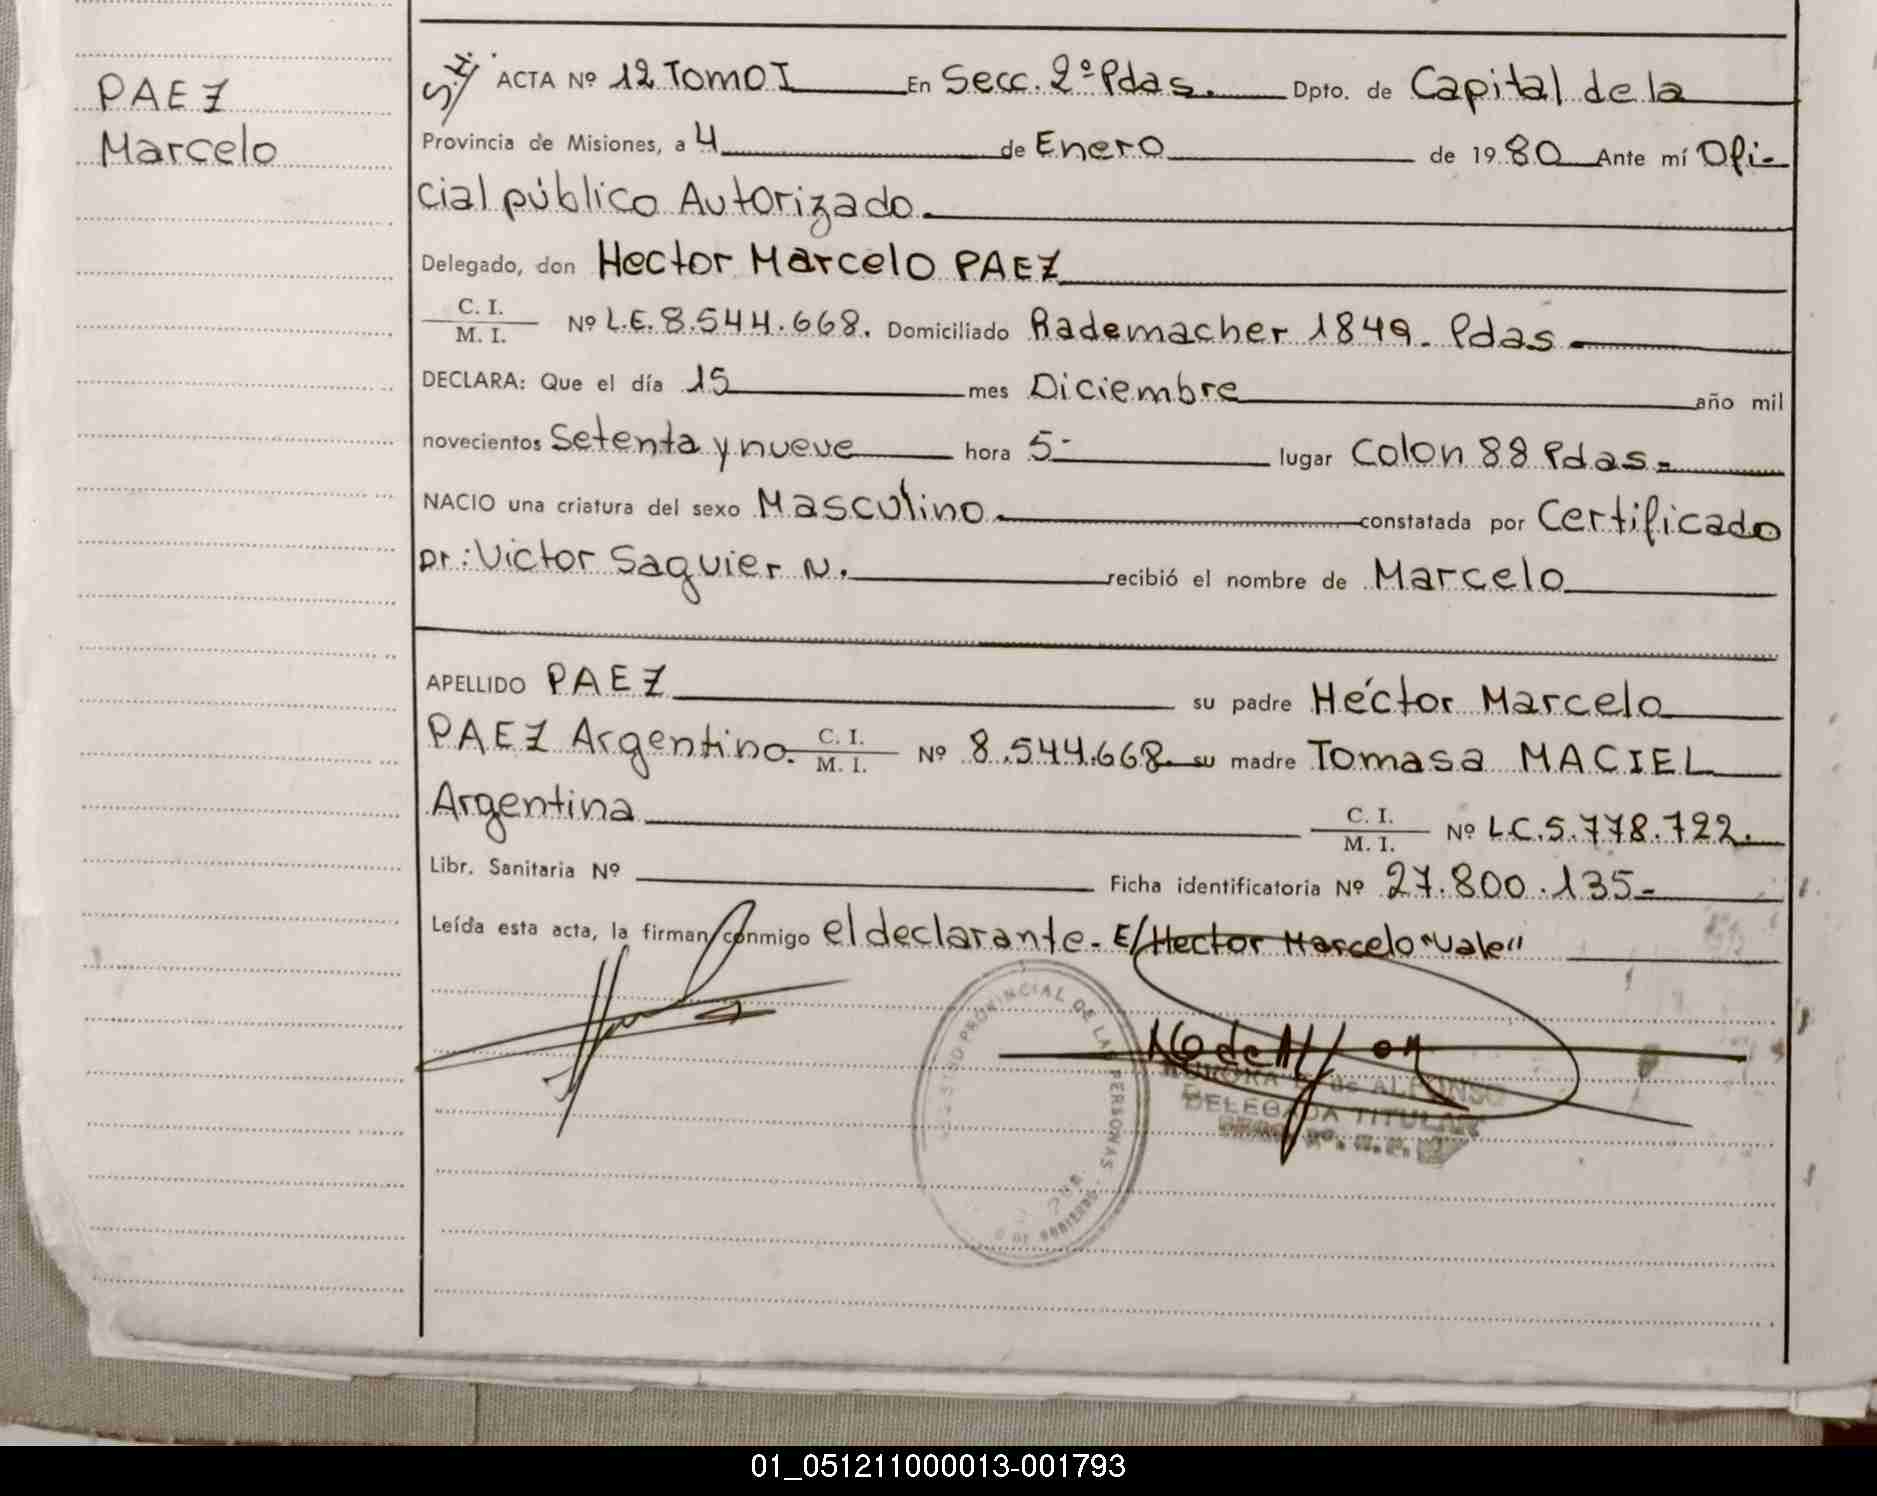 PAEZ
Marcelo
S.I/ ACTA Nº 12 Tomo I En Secc. 2º Pdas. Dpto. de Capital de la
Provincia de Misiones, a 4 de Enero de 1980 Ante mí Ofi-
cial público Autorizado.
Delegado, don Hector Marcelo PAEZ
C. I.
M. I. Nº L.E. 8.544.668. Domiciliado Rademacher 1849. Pdas
DECLARA: Que el día 15 mes Diciembre año mil
novecientos Setenta y nueve hora 5- lugar Colon 88 Pdas.-
NACIO una criatura del sexo Masculino. constatada por Certificado
Dr: Victor Saguier N. recibió el nombre de Marcelo
APELLIDO PAEZ su padre Héctor Marcelo
PAEZ Argentino. C. I. M. I. Nº 8.544.668. su madre Tomasa MACIEL
Argentina C. I. M. I. Nº L.C. 5.778.722.
Libr. Sanitaria Nº Ficha identificatoria Nº 27.800.135-
Leída esta acta, la firman conmigo el declarante.- E/ Hector Marcelo "Vale"
PROVINCIAL DE LAS PERSONAS
de ALFONSO
DELEGADA TITULAR
01_051211000013-001793